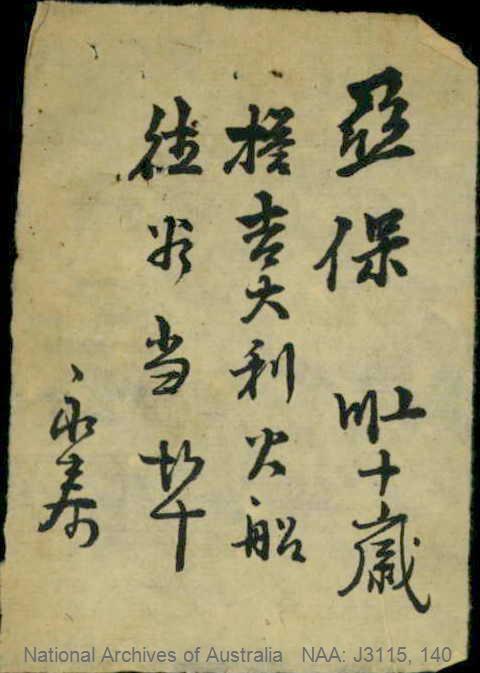 亞保 〣〦十歲
搭吉大利火船
往谷当埠
永
National Archives of Australia NAA: J3115, 140